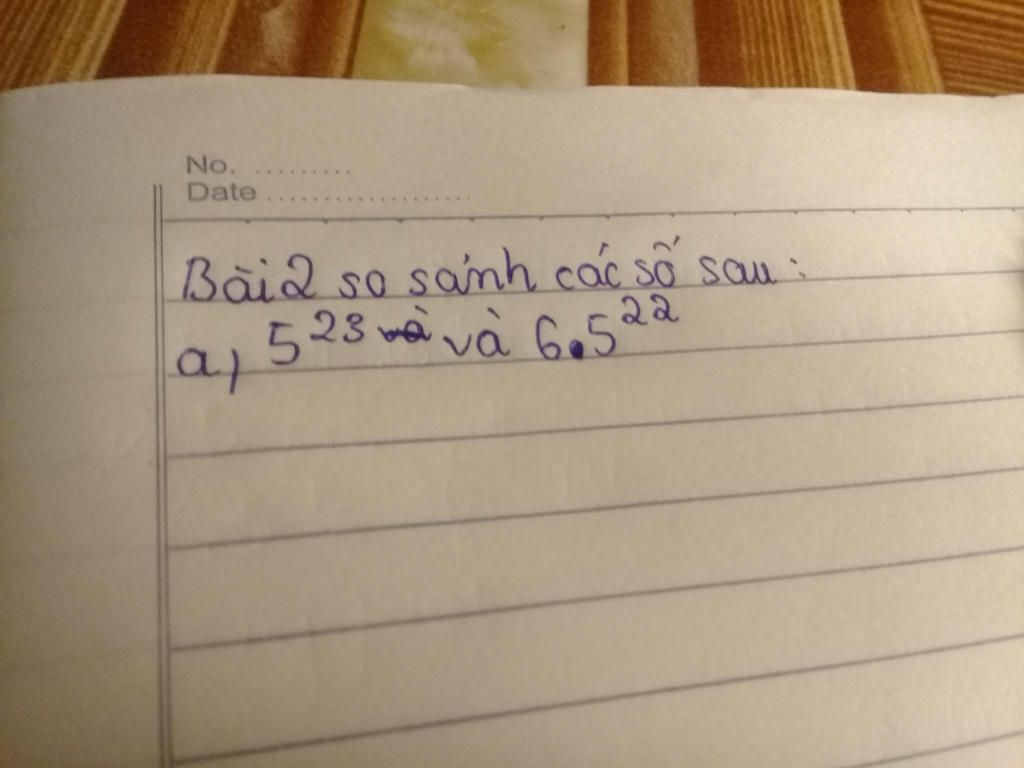 No. .........
Date ...................
Bài 2 so sánh các số sau :
a, 5²³ và 6.5²²